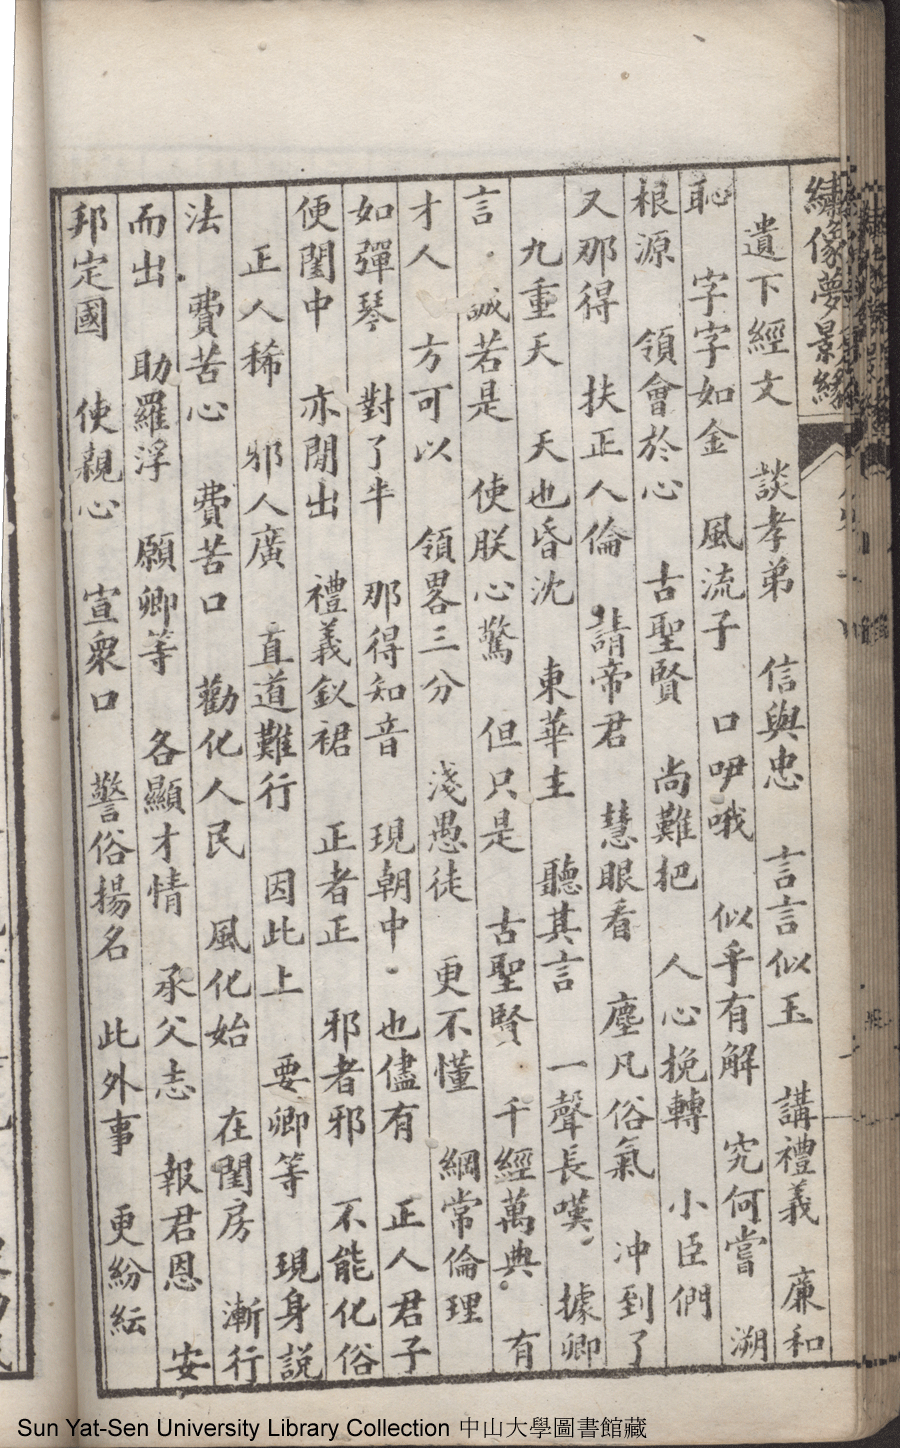 繡像夢景緣
遺下經文　談孝弟　信與忠　言言似玉　講禮義　廉和
恥　字字如金　風流子　口咿哦　似乎有解　究何嘗　溯
根源　領會於心　古聖賢　尚難把　人心挽轉　小臣們
又那得　扶正人倫　請帝君　慧眼看　塵凡俗氣　冲到了
九重天　天也昏沈　東華主　聽其言　一聲長嘆　據卿
言　誠若是　使朕心驚　但只是　古聖賢　千經萬典　有
才人　方可以　領畧三分　淺愚徒　更不懂　綱常倫理
如彈琴　對了牛　那得知音　現朝中　也儘有　正人君子
便閨中　亦閒出　禮義釵裙　正者正　邪者邪　不能化俗
正人稀　邪人廣　直道難行　因此上　要卿等　現身説
法　費苦心　費苦口　勸化人民　風化始　在閨房　漸行
而出　助羅浮　願卿等　各顯才情　承父志　報君恩　安
邦定國　使親心　宣衆口　警俗揚名　此外事　更紛紜
Sun Yat-Sen University Library Collection 中山大學圖書館藏